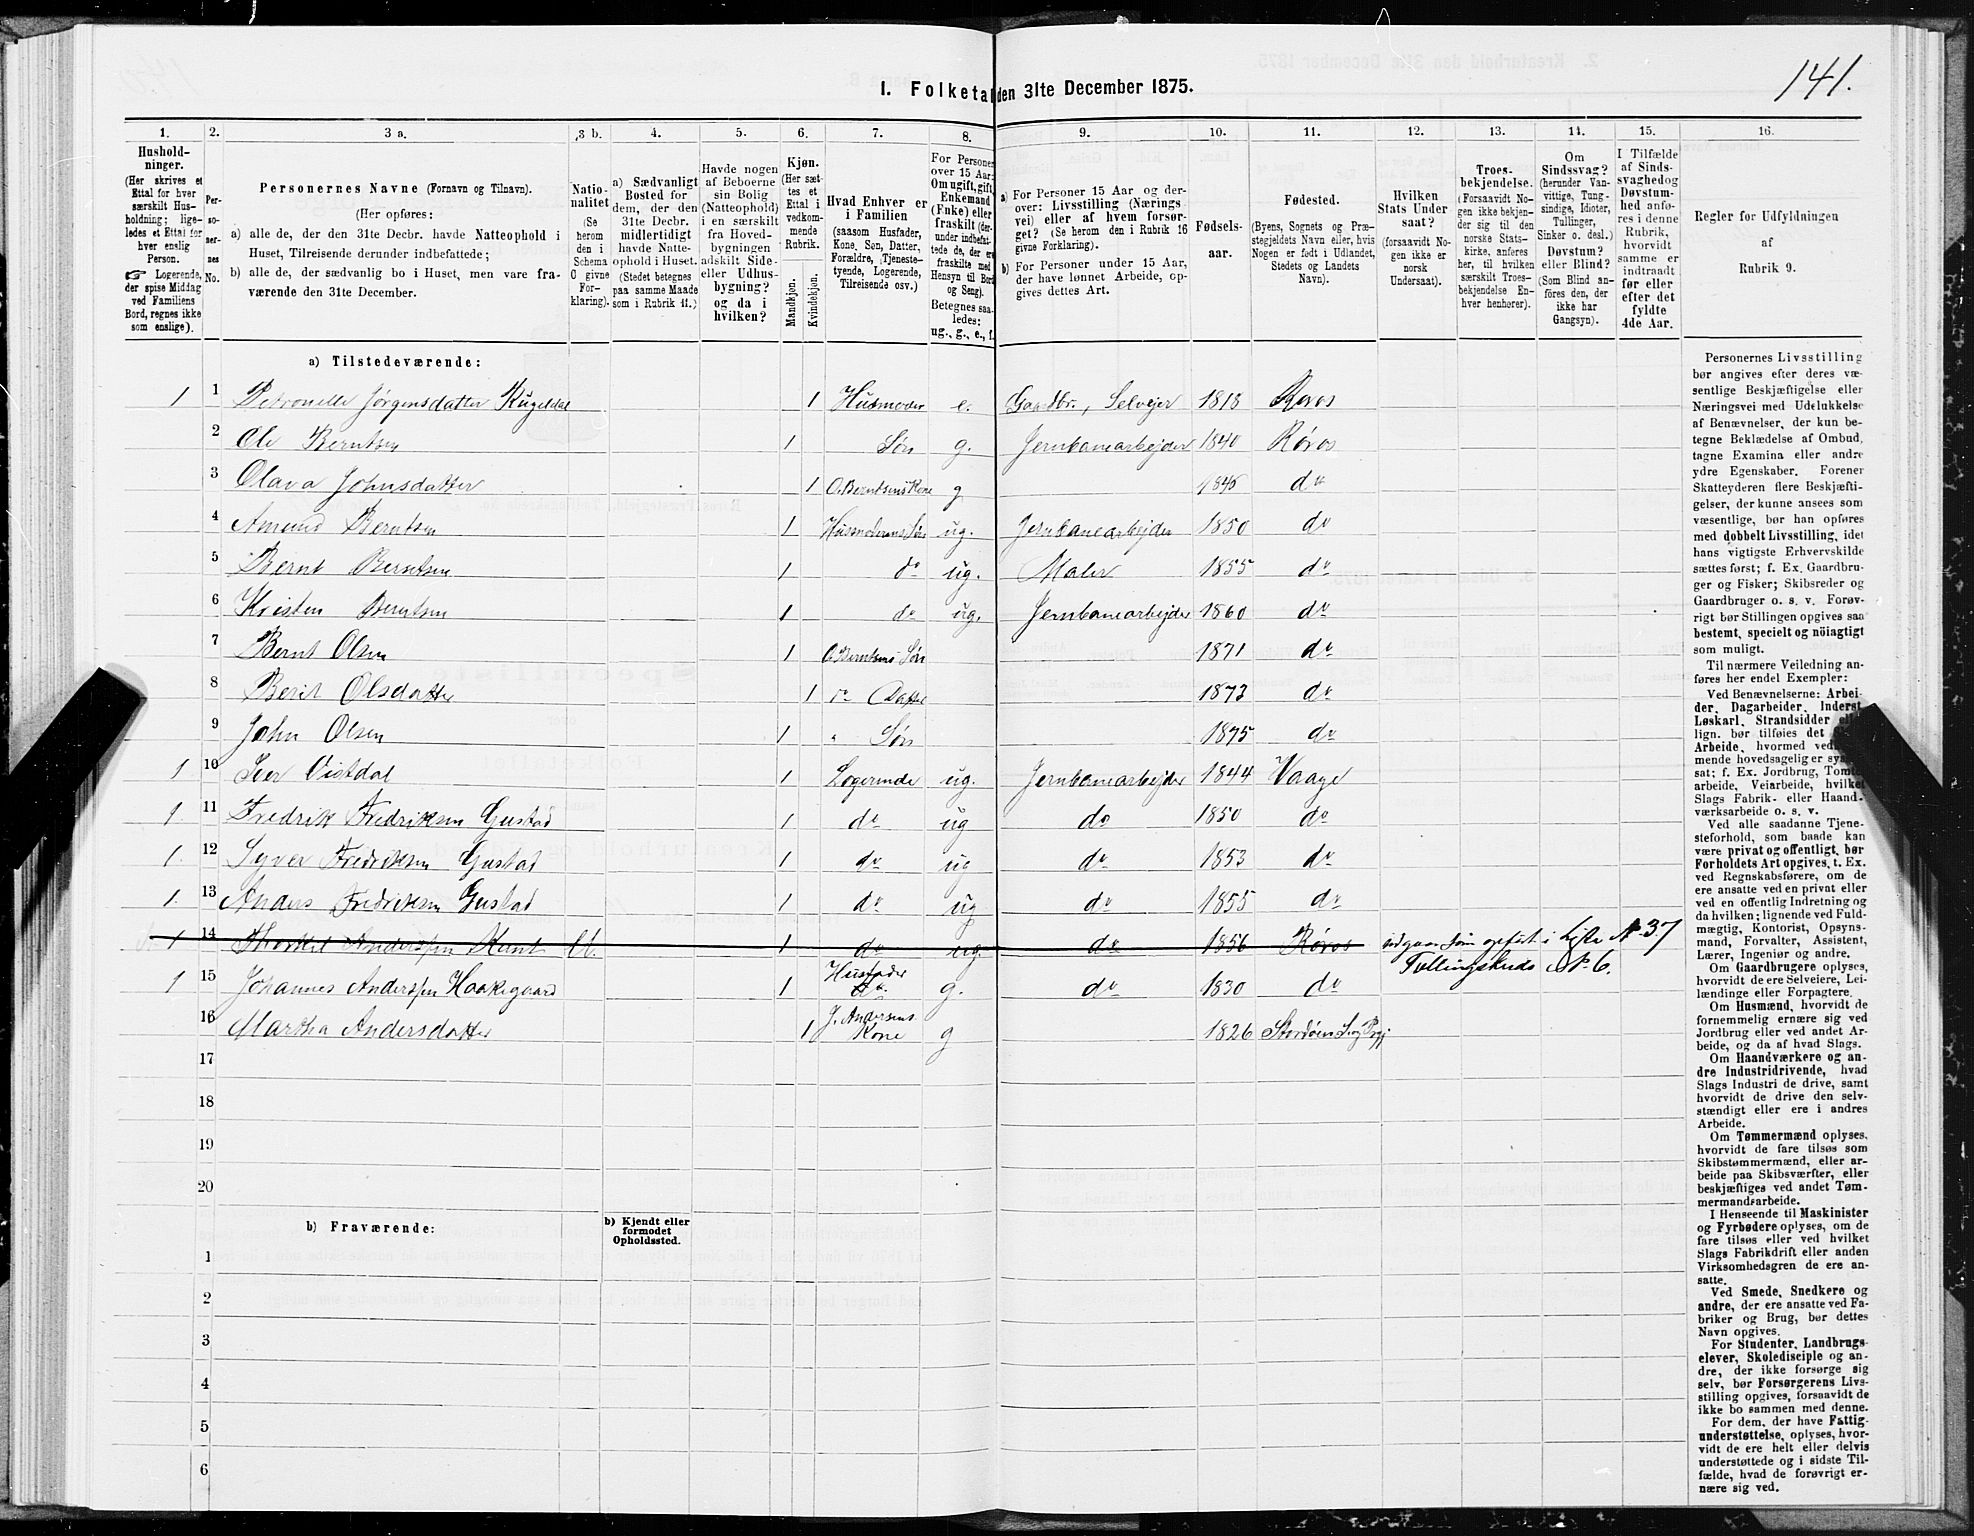 141.
I. Folketal den 31te December 1875.
1. 2. 3 a. 3 b. 4. 5. 6. 7. 8. 9. 10. 11. 12. 13. 14. 15. 16.
Hushold-
ninger.
(Her skrives et
Ettal for hver
særskilt Hus-
holdning; lige-
ledes et Ettal for
hver enslig
Person.
☞ Logerende,
der spise Middag
ved Familiens
Bord, regnes ikke
som enslige).
Per-
so-
ner-
nes
No.
Personernes Navne (Fornavn og Tilnavn).
(Her opføres:
a) alle de, der den 31te Decbr. havde Natteophold i
Huset, Tilreisende derunder indbefattede;
b) alle de, der sædvanlig bo i Huset, men vare fra-
værende den 31te December.
Natio-
nalitet
(Se
herom
den i
Schema
C givne
For-
klaring).
a) Sædvanligt
Bosted for
dem, der den
31te Decbr.
midlertidigt
havde Natte-
ophold i Huset.
(Stedet betegnes
paa samme Maade
som i Rubrik 11.)
Havde nogen
af Beboerne
sin Bolig
(Natteophold)
i en særskilt
fra Hoved-
bygningen
adskilt Side-
eller Udhus-
bygning?
og da i
hvilken?
Kjøn.
(Her sæt-
tes et
Ettal i
vedkom-
mende
Rubrik.
Mandkjøn.
Kvindekjøn.
Hvad Enhver er
i Familien
(saasom Husfader,
Kone, Søn, Datter,
Forældre, Tjeneste-
tyende, Logerende,
Tilreisende osv.)
For Personer
over 15 Aar:
Om ugift, gift,
Enkemand
(Enke) eller
fraskilt (der-
under indbefat-
tede de, der ere
fraskilte med
Hensyn til Bord
og Seng).
Betegnes saa-
ledes:
ug., g., e., f.
a) For Personer 15 Aar og der-
over: Livsstilling (Nærings-
vei) eller af hvem forsør-
get? (Se herom den i Rubrik 16
givne Forklaring).
b) For Personer under 15 Aar,
der have lønnet Arbeide, op-
gives dettes Art.
Fødsels-
aar.
Fødested.
(Byens, Sognets og Præ-
stegjeldets Navn eller, hvis
Nogen er født i Udlandet,
Stedets og Landets
Navn).
Hvilken
Stats Under-
saat?
(forsaavidt No-
gen ikke er
norsk
Undersaat).
Troes-
bekjendelse.
(Forsaavidt No-
gen ikke bekjen-
der sig til den
norske Stats-
kirke, anføres
her, til hvilken
særskilt Troes-
bekjendelse En-
hver henhører).
Om
Sindssvag?
(herunder Van-
vittige, Tung-
sindige, Idioter,
Tullinger,
Sinker o. desl.)
Døvstum?
eller Blind?
(Som Blind an-
føres den, der
ikke har
Gangsyn).
I Tilfælde
af Sinds-
svaghed og
Døvstum-
hed anfø-
res i denne
Rubrik,
hvorvidt
samme er
indtraadt
før eller
efter det
fyldte
4de Aar.
Regler for Udfyldningen
af
Rubrik 9.
a) Tilstedeværende:
1 1 Petronelle Jørgensdatter Kugeldal 1 Husmoder e. Gaardbr., Selvejer 1818 Røros
2 Ole Berntsen 1 Søn g. Jernbanearbejder 1840 Røros
3 Olava Johnsdatter 1 O. Berntsens Kone g 1845 do
4 Amund Berntsen 1 Husmoderens Søn ug. Jernbanearbejder 1850 do
5 Bernt Berntsen 1 do ug. Maler 1855 do
6 Kristen Berntsen 1 do ug. Jernbanearbejder 1860 do
7 Bernt Olsen 1 O. Berntsens Søn 1871 do
8 Berit Olsdatter 1 do Datter 1873 do
9 John Olsen 1 " Søn 1875 do
1 10 Iver Vistdal 1 Logerende ug. Jernbanearbejder 1844 Vaage
1. 11 Fredrik Fredriksen Gustad 1 do ug do 1850 do
1. 12 Syver Fredriksen Gustad 1 do ug do 1853 do
1. 13 Anders Fredriksen Gustad 1 do ug do 1855 do
1 14 Anderssen 1 do ug. do 1856 Røros udgaar som opført i Liste No 37
Tællingskreds No 6.
1 15 Johannes Anderssen Haakegaard 1 Husfader do g. do 1830 do
16 Martha Andersdatter 1 J. Andersens Kone g 1826
17
18
19
20
b) Fraværende:
b) Kjendt eller
formodet
Opholdssted.
1
2
3
4
5
6
Personernes Livsstilling
bør angives efter deres væ-
sentlige Beskjæftigelse eller
Næringsvei med Udelukkelse
af Benævnelser, der kun be-
tegne Beklædelse af Ombud,
tagne Examina eller andre
ydre Egenskaber. Forener
Skatteyderen flere Beskjæfti-
gelser, der kunne ansees som
væsentlige, bør han opføres
med dobbelt Livsstilling, idet
hans vigtigste Erhvervskilde
sættes først; f. Ex. Gaardbru-
ger og Fisker; Skibsreder og
Gaardbruger o. s. v. Forøv-
rigt bør Stillingen opgives saa
bestemt, specielt og nöiagtigt
som muligt.
Til nærmere Veiledning an-
føres her endel Exempler:
Ved Benævnelserne: Arbei-
der, Dagarbeider, Inderst,
Løskarl, Strandsidder eller
lign. bør tilføies det Slags
Arbeide, hvormed vedkom-
mende hovedsagelig er sys-
sat; f. Ex. Jordbrug, Tomt-
arbeide, Veiarbeide, hvilket
Slags Fabrik- eller Haand-
værksarbeide o. s. v.
Ved alle saadanne Tjene-
steforhold, som baade kan
være privat og offentligt, bør
Forholdets Art opgives, t. Ex.
ved Regnskabsførere, om de
ere ansatte ved en privat eller
ved en offentlig Indretning og
da hvilken; lignende ved Fuld-
mægtig, Kontorist, Opsyns-
mand, Forvalter, Assistent,
Lærer, Ingeniør og andre.
Om Gaardbrugere oplyses,
hvorvidt de ere Selveiere, Lei-
lændinge eller Forpagtere.
Om Husmænd, hvorvidt de
fornemmelig ernære sig ved
Jordbrug eller ved andet Ar-
beide, og da af hvad Slags.
Om Haandværkere og an-
dre Industridrivende, hvad
Slags Industri de drive, samt
hvorvidt de drive den selv-
stændigt eller ere i andres
Arbeide.
Om Tømmermænd oplyses,
hvorvidt de fare tilsøs som
Skibstømmermænd, eller ar-
beide paa Skibsværfter, eller
beskjæftiges ved andet Tøm-
mermandsarbeide.
I Henseende til Maskinister
og Fyrbødere oplyses, om de
fare tilsøs eller ved hvilket
Slags Fabrikdrift eller anden
Virksomhedsgren de ere an-
satte.
Ved Smede, Snedkere og
andre, der ere ansatte ved Fa-
briker og Brug, bør dettes
Navn opgives.
For Studenter, Landbrugs-
elever, Skoledisciple og an-
dre, der ikke forsørge sig
selv, bør Forsørgerens Livs-
stilling opgives, forsaavidt de
ikke bo sammen med denne.
For dem, der have Fattig-
understøttelse, oplyses, hvor-
vidt de ere helt eller delvis
understøttede og i sidste Til-
fælde, hvad de forøvrigt er-
nære sig ved.